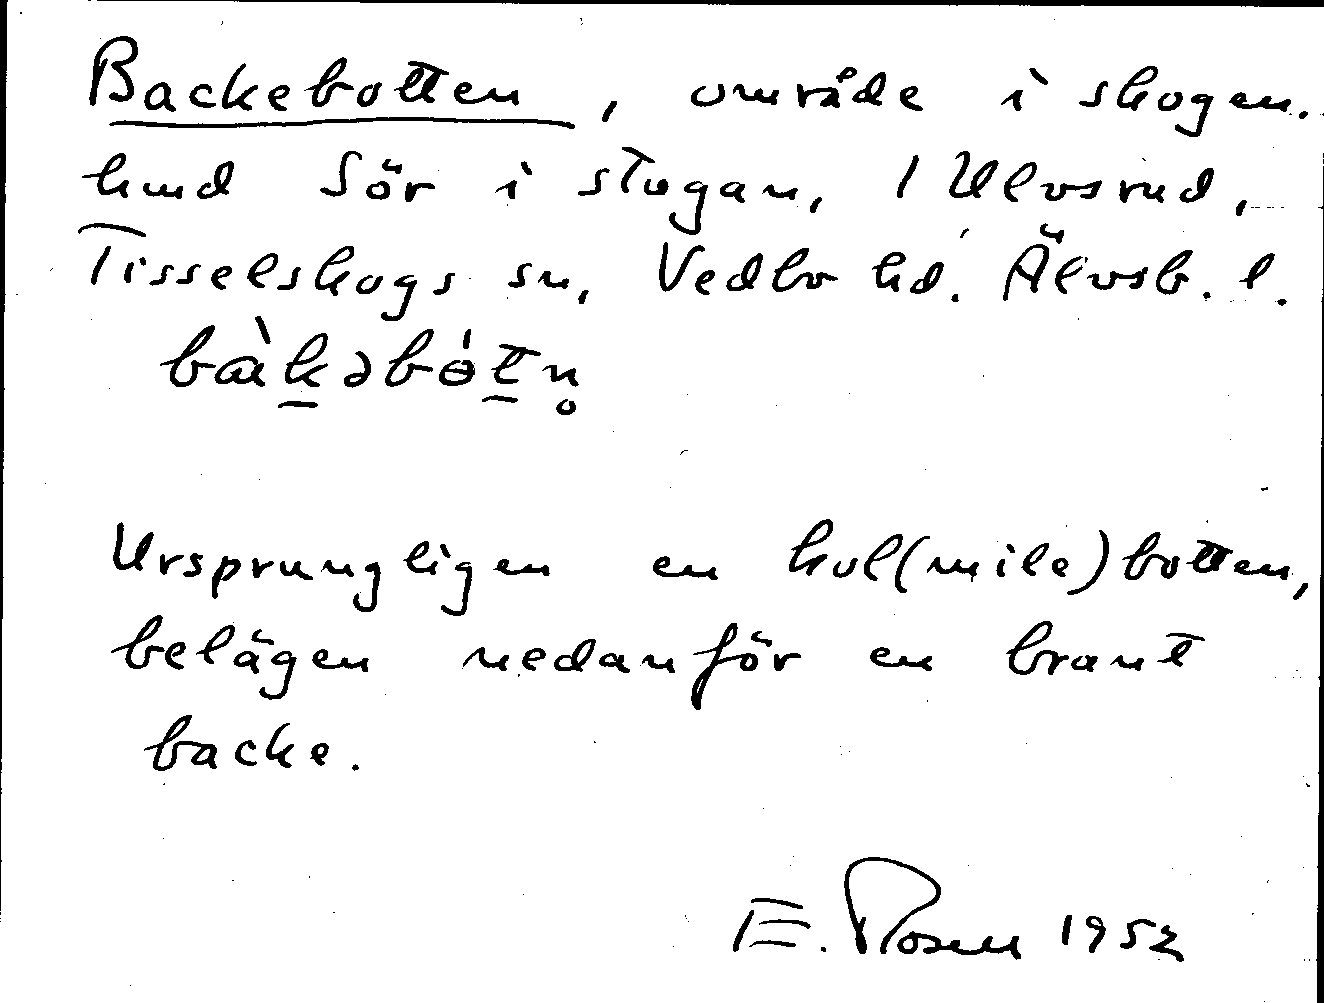 Backebotten, område i skogen.
hmd Sör i stugan, 1 Ulvsrud,
Tisselskogs sn, Vedbo hd. Älvsb. l.
bàkəbòtn̥
Ursprungligen en kol(mile)botten,
belägen nedanför en brant
backe.
E. Rosell 1952